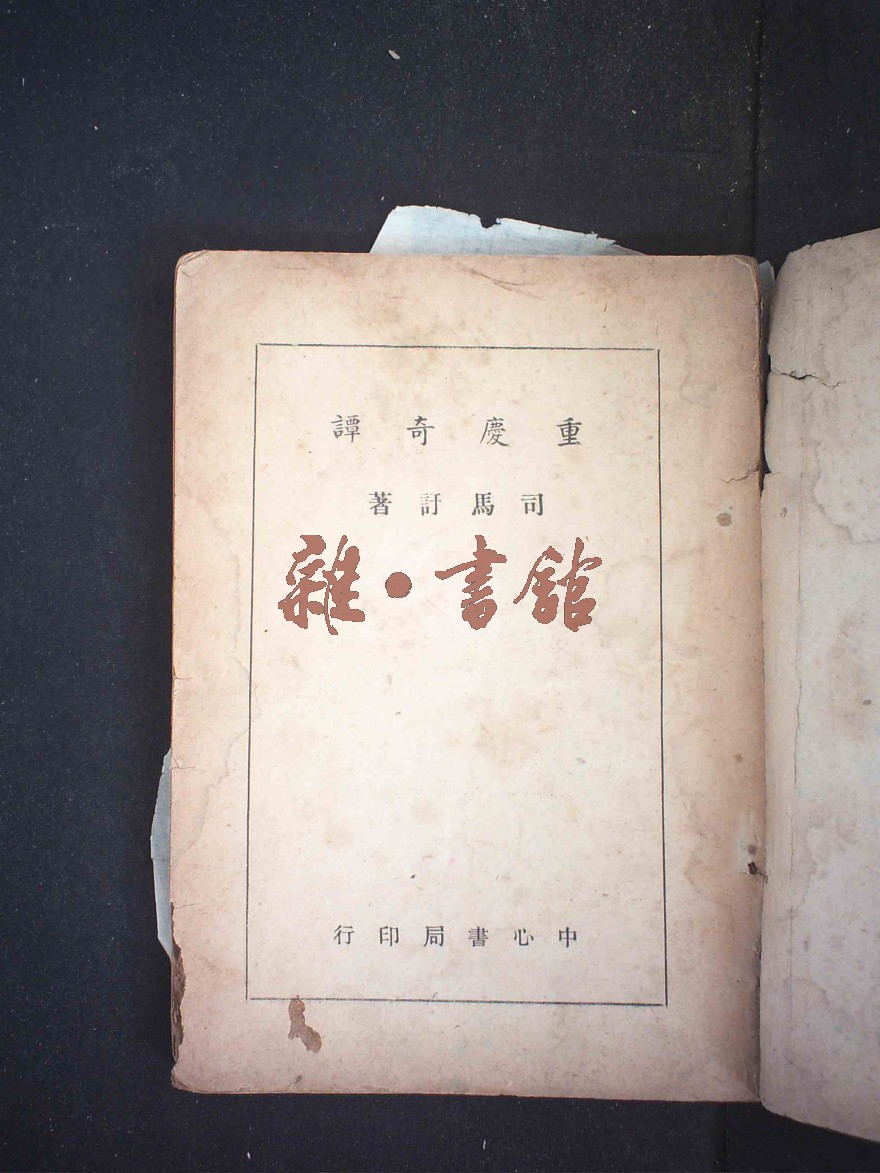 重慶奇譚
司馬訏著
雜·書館
中心書局印行